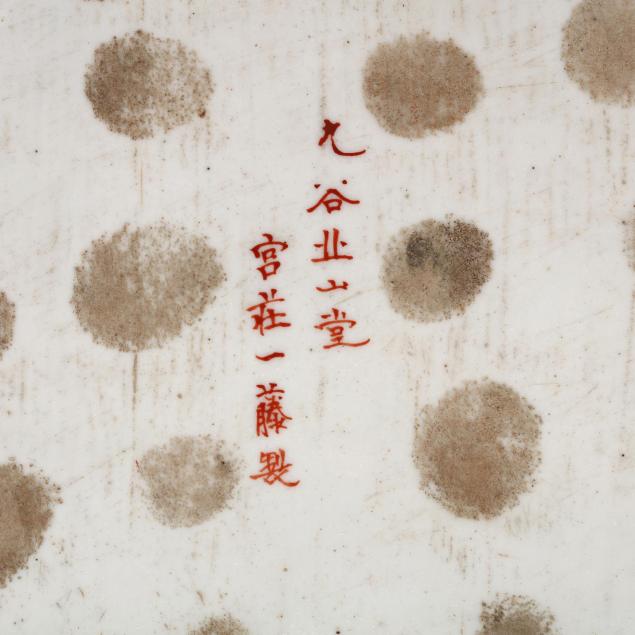 九谷北山堂
宮荘一藤製